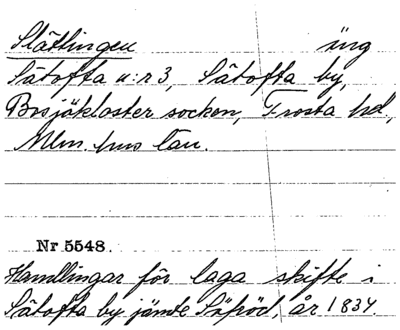 Slättingen äng
Sätofta n:r 3, Sätofta by,
Bosjökloster socken, Frosta hd.,
Mlm. hus län.
Nr 5548.
Handlingar för laga skifte i
Sätofta by jämte Säfröd, år 1834.